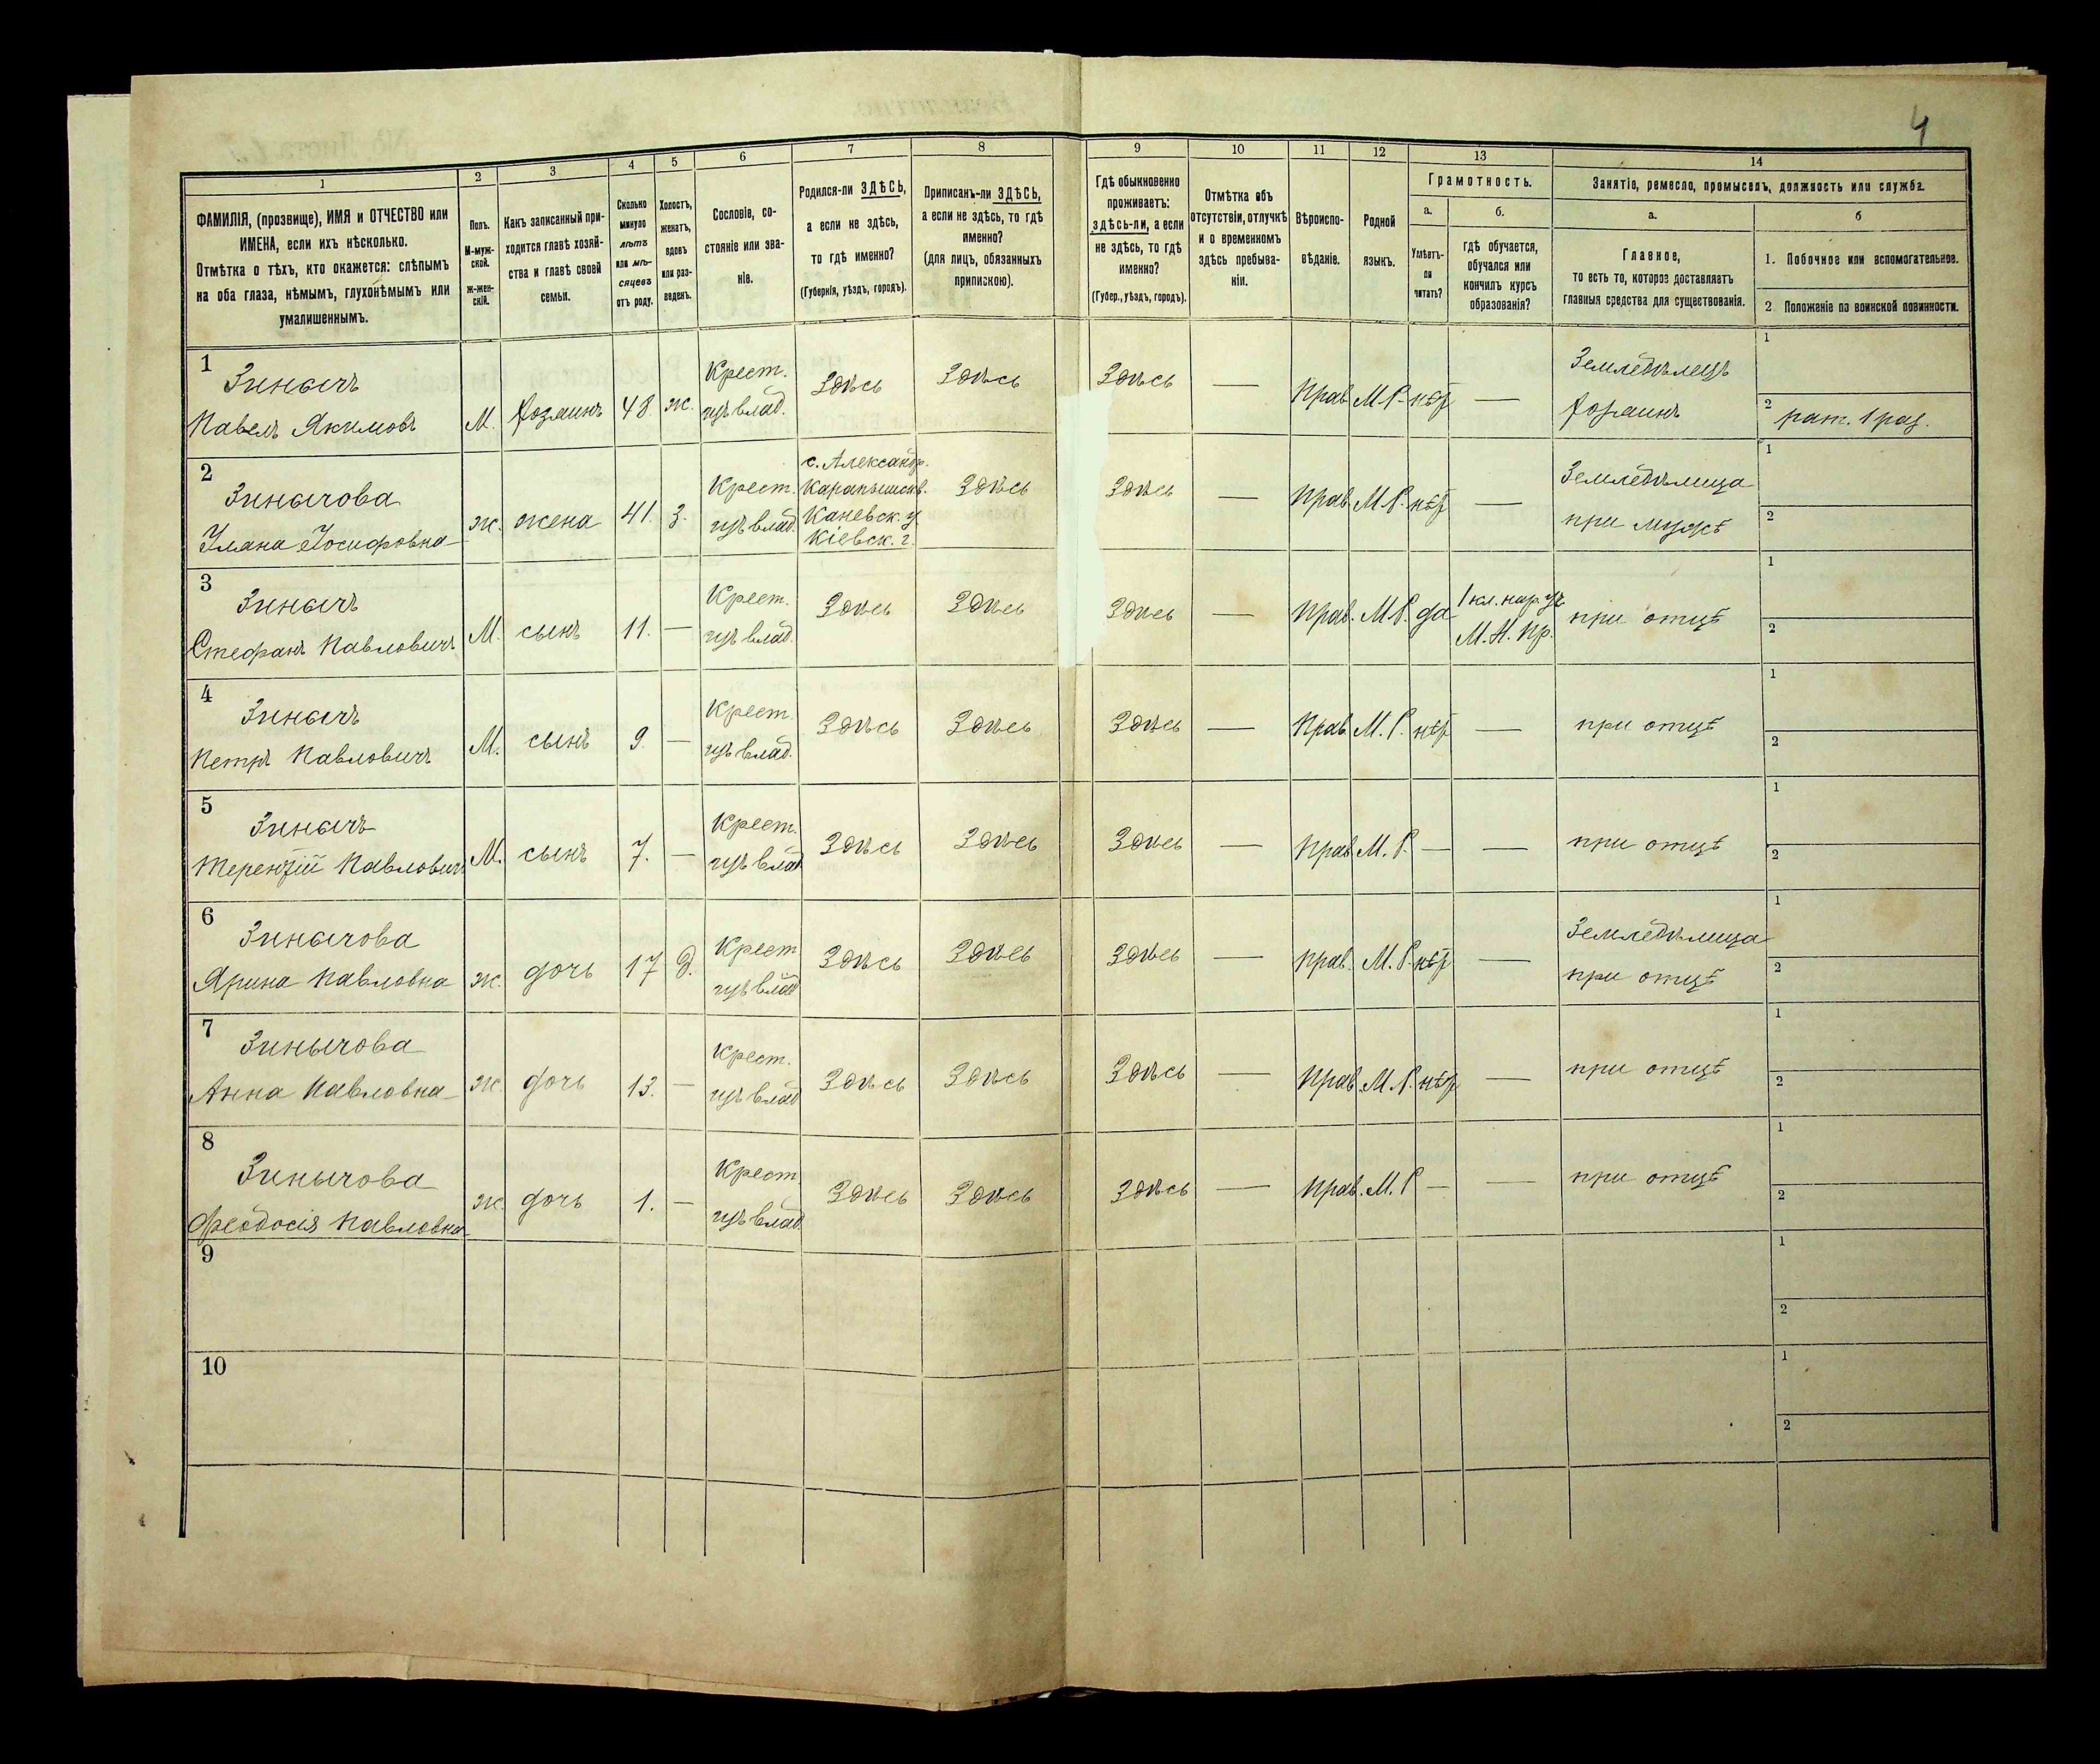 4
1
2
3
4
5
6
7
8
9
10
11
12
13
14
ФАМИЛІЯ, (прозвище), ИМЯ и ОТЧЕСТВО или
ИМЕНА, если ихъ нѣсколько.
Отмѣтка о тѣхъ, кто окажется: слѣпымъ
на оба глаза, нѣмымъ, глухонѣмымъ или
умалишеннымъ.
Полъ.
М-муж-
ской.
ж-жен-
скій.
Какъ записанный при-
ходится главѣ хозяй-
ства и главѣ своей
семьи.
Сколько
минуло
лѣтъ
или мѣ-
сяцевъ
отъ роду.
Холостъ,
женатъ,
вдовъ
или раз-
веденъ.
Сословіе, со-
стояніе или зва-
ніе.
Родился-ли ЗДѢСЬ,
а если не здѣсь,
то гдѣ именно?
(Губернія, уѣздъ, городъ).
Приписанъ-ли ЗДѢСЬ,
а если не здѣсь, то гдѣ
именно?
(для лицъ, обязанныхъ
припискою).
Гдѣ обыкновенно
проживаетъ:
здѣсь-ли, а если
не здѣсь, то гдѣ
именно?
(Губер., уѣздъ, городъ).
Отмѣтка объ
отсутствіи, отлучкѣ
и о временномъ
здѣсь пребыва-
ніи.
Вѣроиспо-
вѣданіе.
Родной
языкъ.
Грамотность.
а.
б.
Умѣетъ-
ли
читать?
гдѣ обучается,
обучался или
кончилъ курсъ
образованія?
Занятіе, ремесло, промыселъ, должность или служба.
а.
б
Главное,
то есть то, которое доставляетъ
главныя средства для существованія.
1. Побочное или вспомогательное.
2 Положеніе по воинской повинности.
1
Зинычъ
Павелъ Якимовъ
М.
хозяинъ
48.
ж.
Крест.
изъ влад.
Здѣсь
Здѣсь
Здѣсь
—
Прав.
М Р.
нѣт
—
Земледѣлецъ
хозяинъ
1
2
рат. 1 раз.
2
Зинычова
Уляна Іосифовна
ж.
жена
41.
з.
Крест.
изъ влад.
с. Александр.
Карапышинв.
Каневск. у
Кіевск. г.
Здѣсь
Здѣсь
—
Прав.
М Р.
нѣт
—
Земледѣлица
при мужѣ
1
2
3
Зинычъ
Стефанъ Павловичъ
М.
сынъ
11.
—
Крест.
изъ влад.
Здѣсь
Здѣсь
Здѣсь
—
Прав.
М Р.
да
1 кл. нар. уч.
М. Н. Пр.
при отцѣ
1
2
4
Зинычъ
Петръ Павловичъ
М.
сынъ
9.
—
Крест.
изъ влад.
Здѣсь
Здѣсь
Здѣсь
—
Прав.
М. Р.
нѣт
—
при отцѣ
1
2
5
Зинычъ
Терентій Павловичъ
М.
сынъ
7.
—
Крест.
изъ влад
Здѣсь
Здѣсь
Здѣсь
—
Прав.
М. Р.
—
—
при отцѣ
1
2
6
Зинычова
Ярина Павловна
ж.
дочь
17
д.
Крест
изъ влад
Здѣсь
Здѣсь
Здѣсь
—
прав.
М. Р.
нѣт
—
Земледѣлица
при отцѣ
1
2
7
Зинычова
Анна Павловна
ж.
дочь
13.
—
Крест.
изъ влад
Здѣсь
Здѣсь
Здѣсь
—
Прав.
М. Р.
нѣт
—
при отцѣ
1
2
8
Зинычова
Феодосія Павловна
ж.
дочь
1.
—
Крест.
изъ влад.
Здѣсь
Здѣсь
Здѣсь
—
Прав.
М. Р
—
—
при отцѣ
1
2
9
1
2
10
1
2